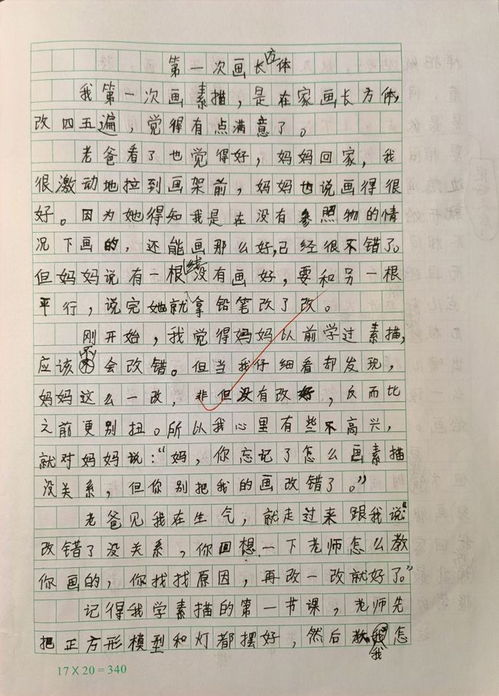 第一次画长方体
我第一次画素描，是在家画长方体，
改四五遍，觉得有点满意了。
老爸看了也觉得好，妈妈回家，我
很激动地拉到画架前，妈妈也说画得很
好。因为她得知我是在没有参照物的情
况下画的，还能画那么好，已经很不错了。
但妈妈说有一根线没有画好，要和另一根
平行，说完她就拿铅笔改了改。
刚开始，我觉得妈妈以前学过素描，
应该不会改错。但当我仔细看却发现，
妈妈这么一改，非但没有改好，反而比
之前更别扭。所以我心里有些不高兴，
就对妈妈说：“妈，你忘记了怎么画素描
没关系，但你别把我的画改错了。”
老爸见我在生气，就走过来跟我说“
改错了没关系，你回想一下老师怎么教
你画的，你找找原因，再改一改就好了。”
记得我学素描的第一节课，老师先
把正方形模型和灯都摆好，然后教我怎
17×20=340